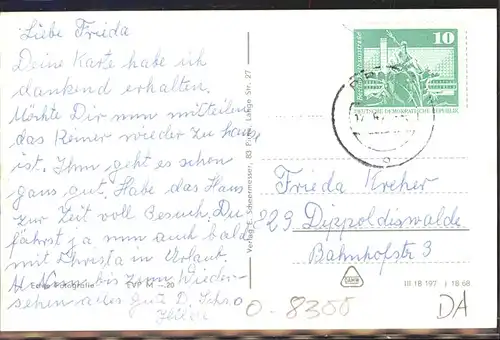 Liebe Frieda
Deine Karte habe ich
dankend erhalten.
Möchte Dir nun mitteilen
das Reiner wieder zu Haus
ist. Ihm geht es schon
ganz gut. Habe das Haus
zur Zeit voll Besuch. Du
fährst ja nun auch bald
mit Christa in Urlaub.
Nun bis zum Wieder-
sehen alles Gute D.
Echte Fotografie EVP M -.20
Verlag E. Schennessen, 83 Pirna, Lange Str. 27
10
DEUTSCHE DEMOKRATISCHE REPUBLIK
Frieda Kreher
829 Dippoldiswalde
Bahnhofstr 3
III 18 197 J 18 68
0-8300
DA